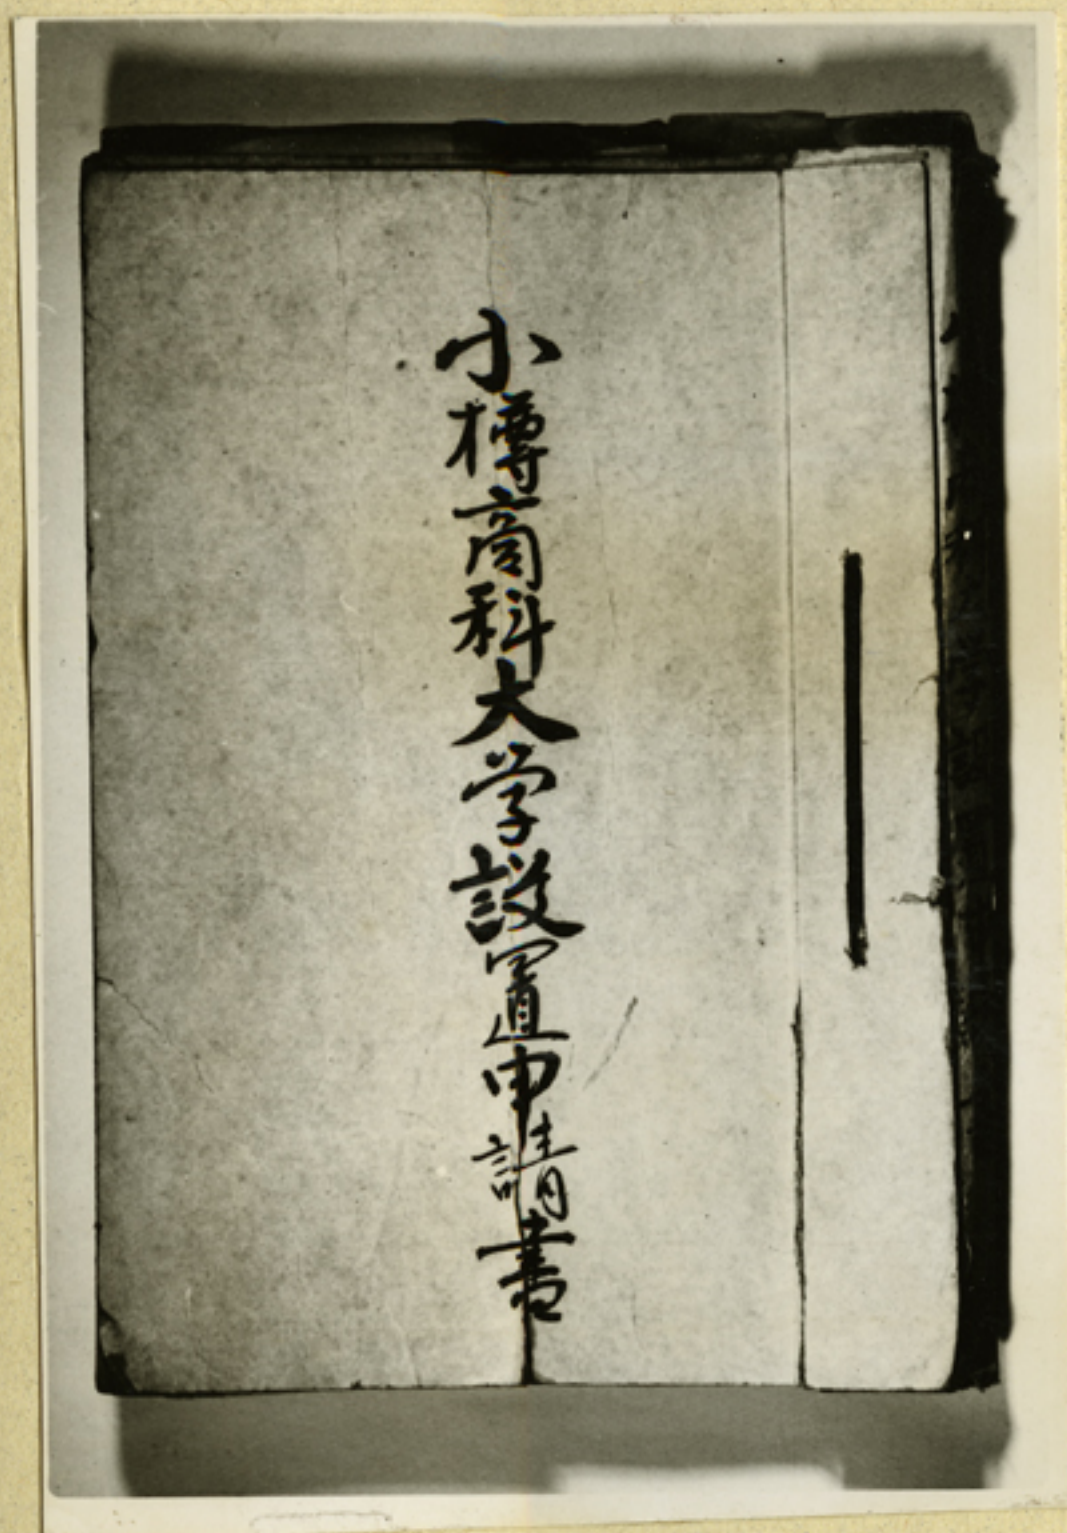 小樽商科大学設置申請書